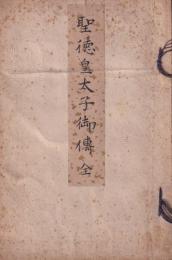 聖徳皇太子御傳全